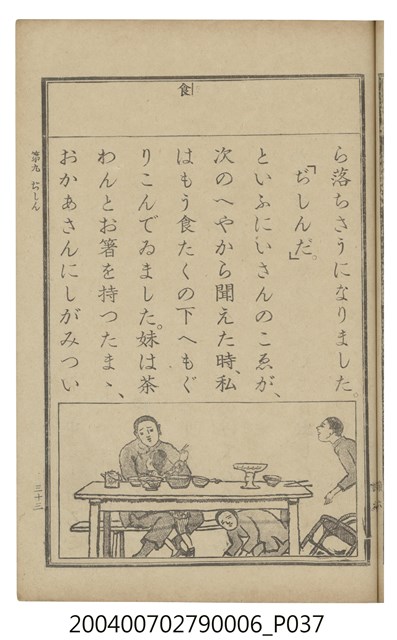 食
ら落ちさうになりました。
「ぢしんだ。」
といふにいさんのこゑが、
次のへやから聞えた時、私
はもう食たくの下へもぐ
りこんでゐました。妹は茶
わんとお箸を持つたまゝ、
おかあさんにしがみつい
第九 ぢしん
三十三
200400702790006_P037